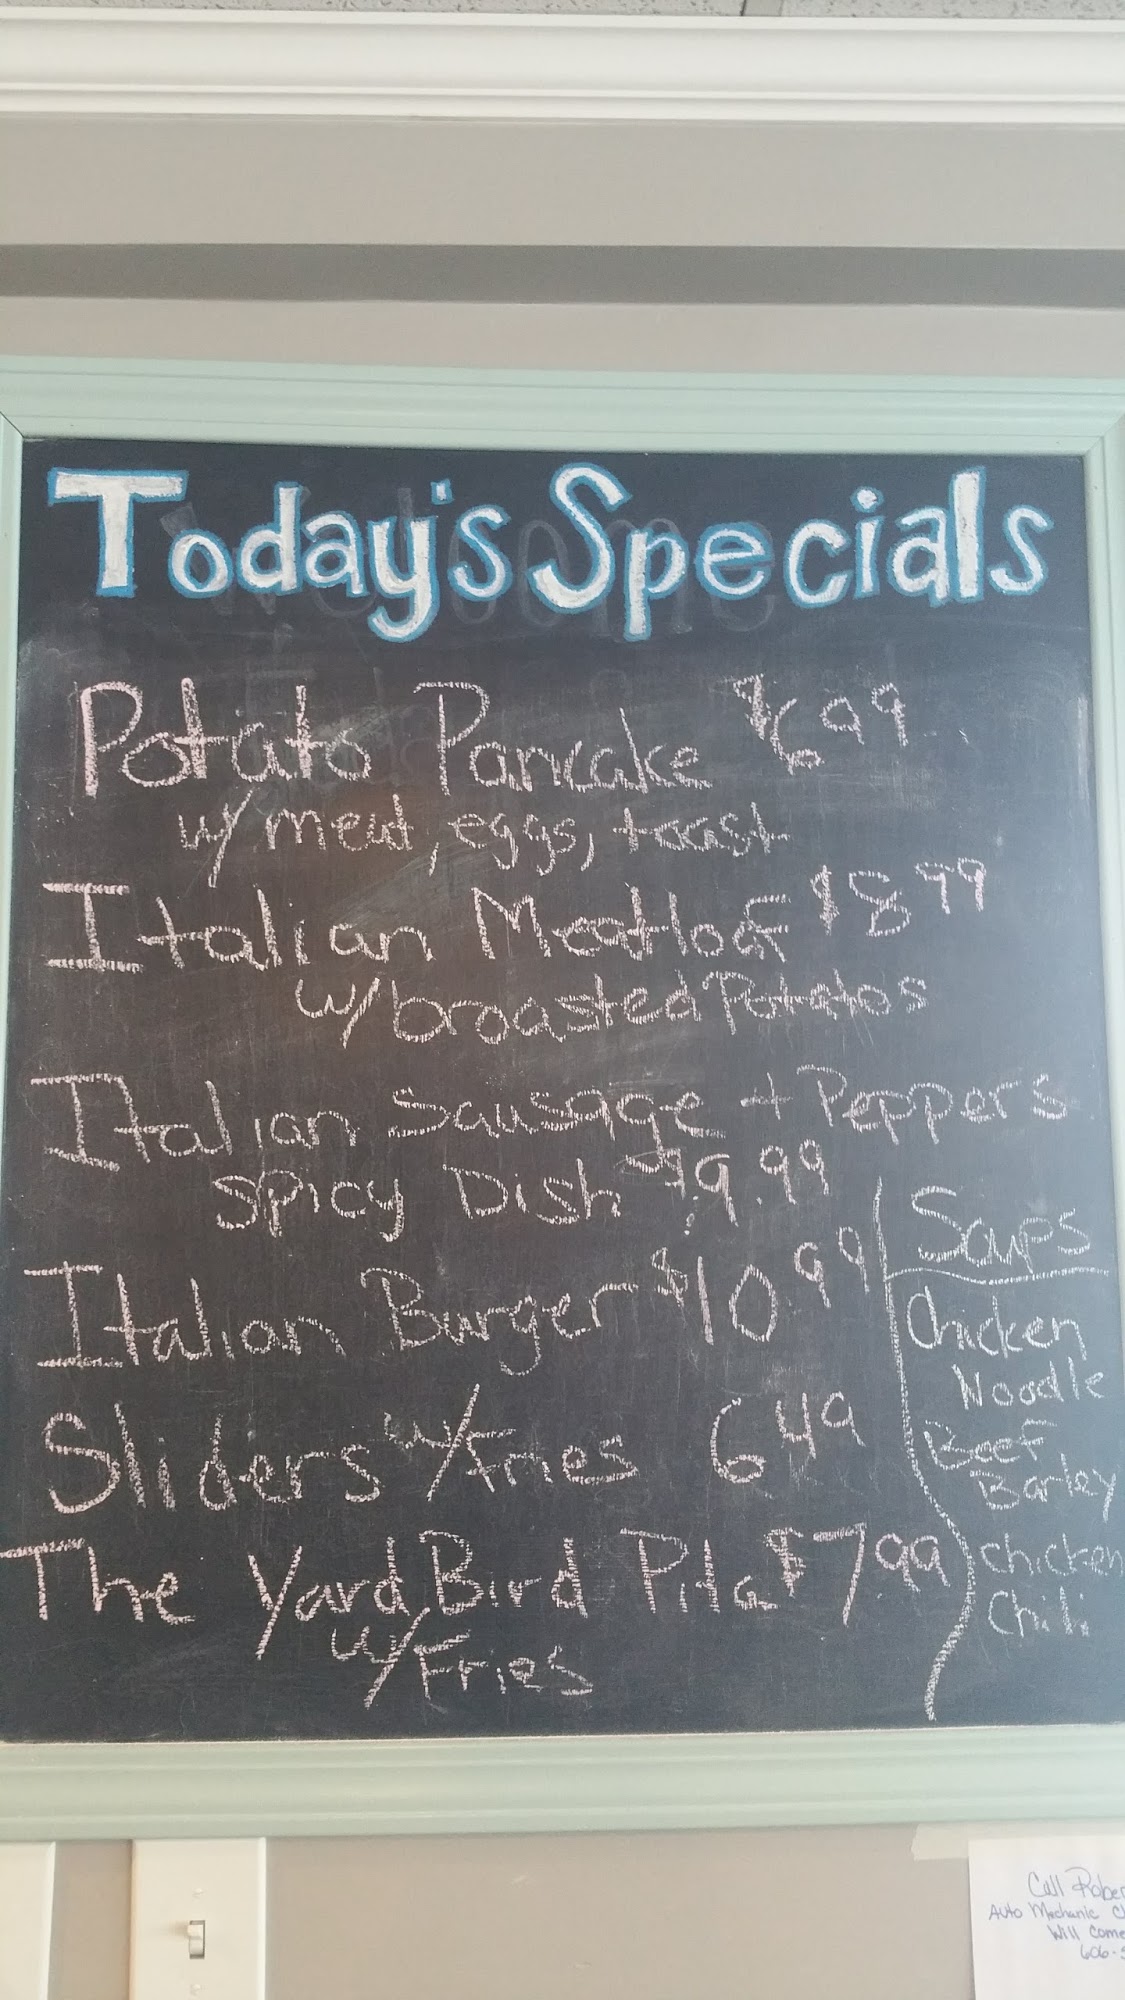 Today's Specials
Potato Pancake $6.99
w/ meat, eggs, toast
Italian Meatloaf $8.99
w/ broasted Potatos
Italian Sausage + Peppers
Spicy Dish $9.99
Italian Burger $10.99
Sliders w/ Fries 6.49
The Yard Bird Pita $7.99
w/ Fries
Soups
Chicken
Noodle
Beef
Barley
Chicken
Chili
Call
Auto Mechanic
Will Come
606-